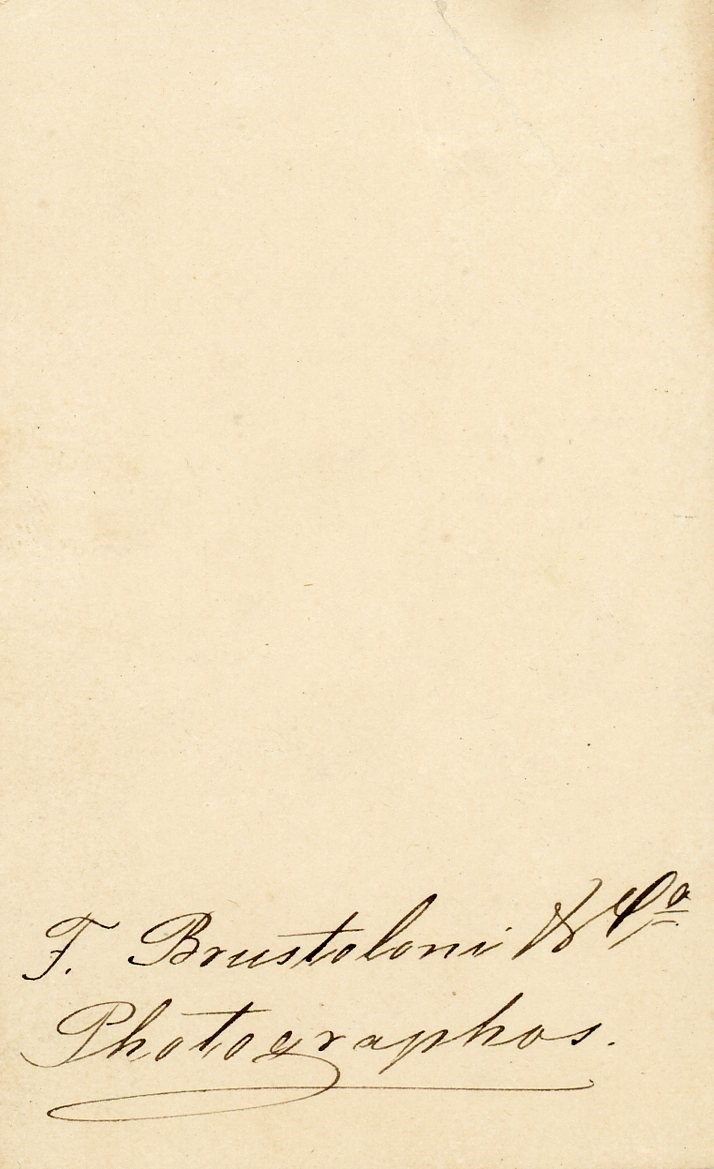 F. Brustoloni & Cª
Photographos.